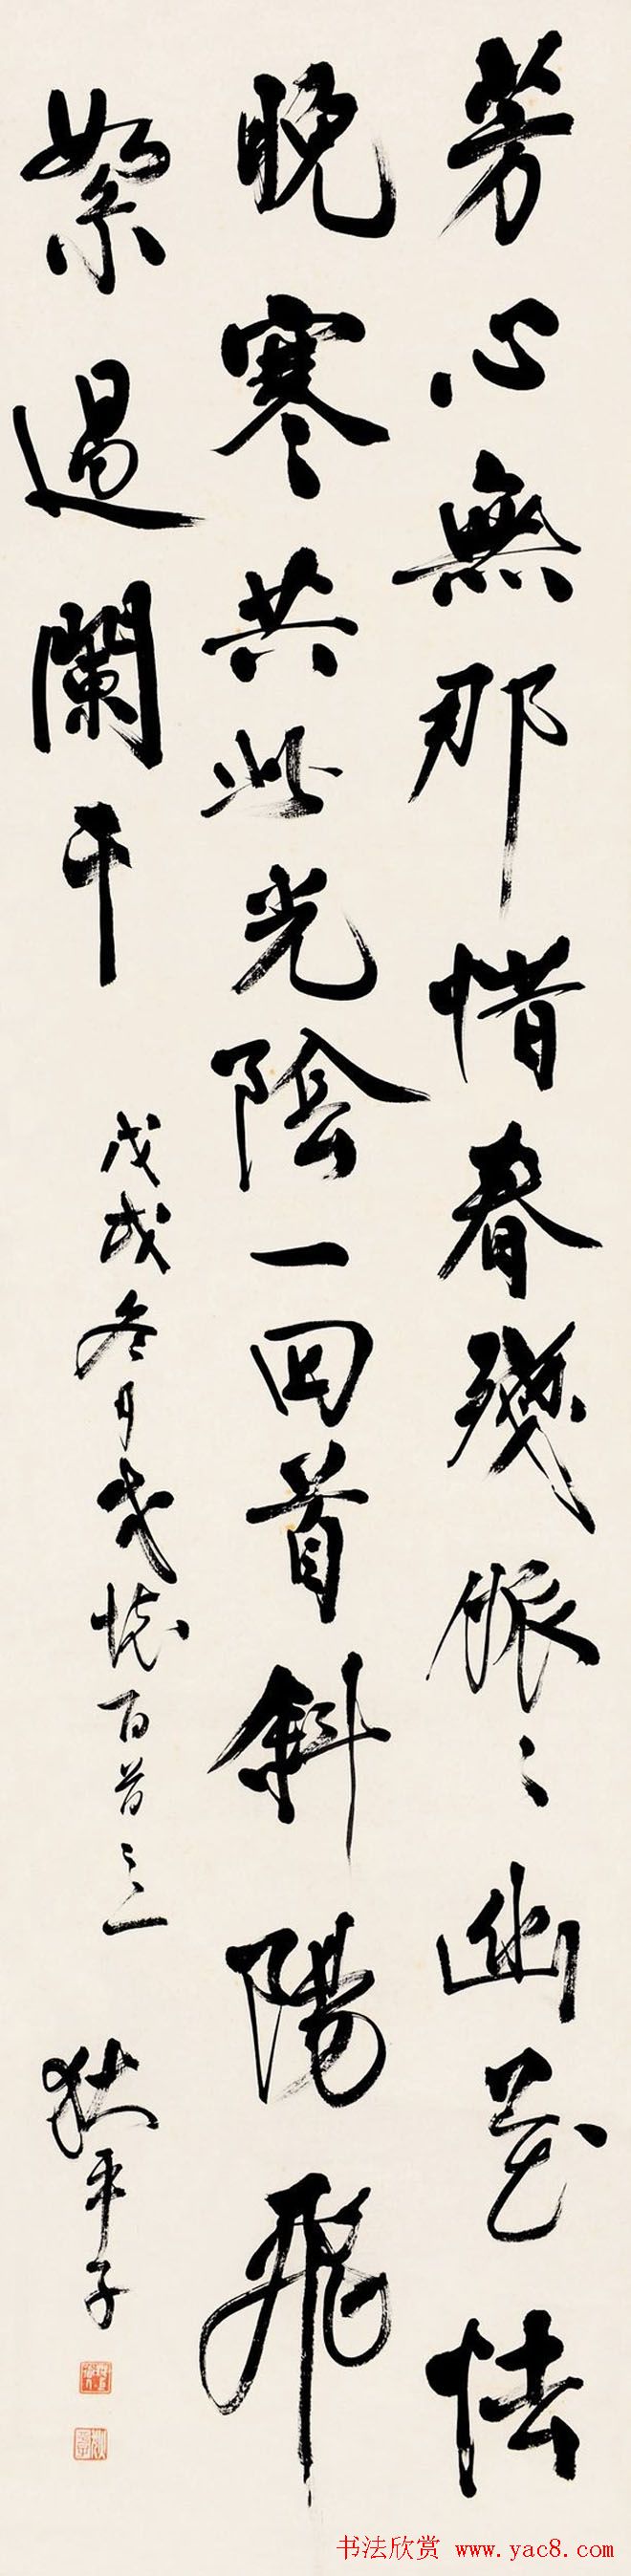 芳心無那惜春殘倀〻幽花怯
晚寒共此光陰一回首斜陽飛
絮過闌干
戊戌冬月感懷百首之一
狄平子
书法欣赏 www.yac8.com